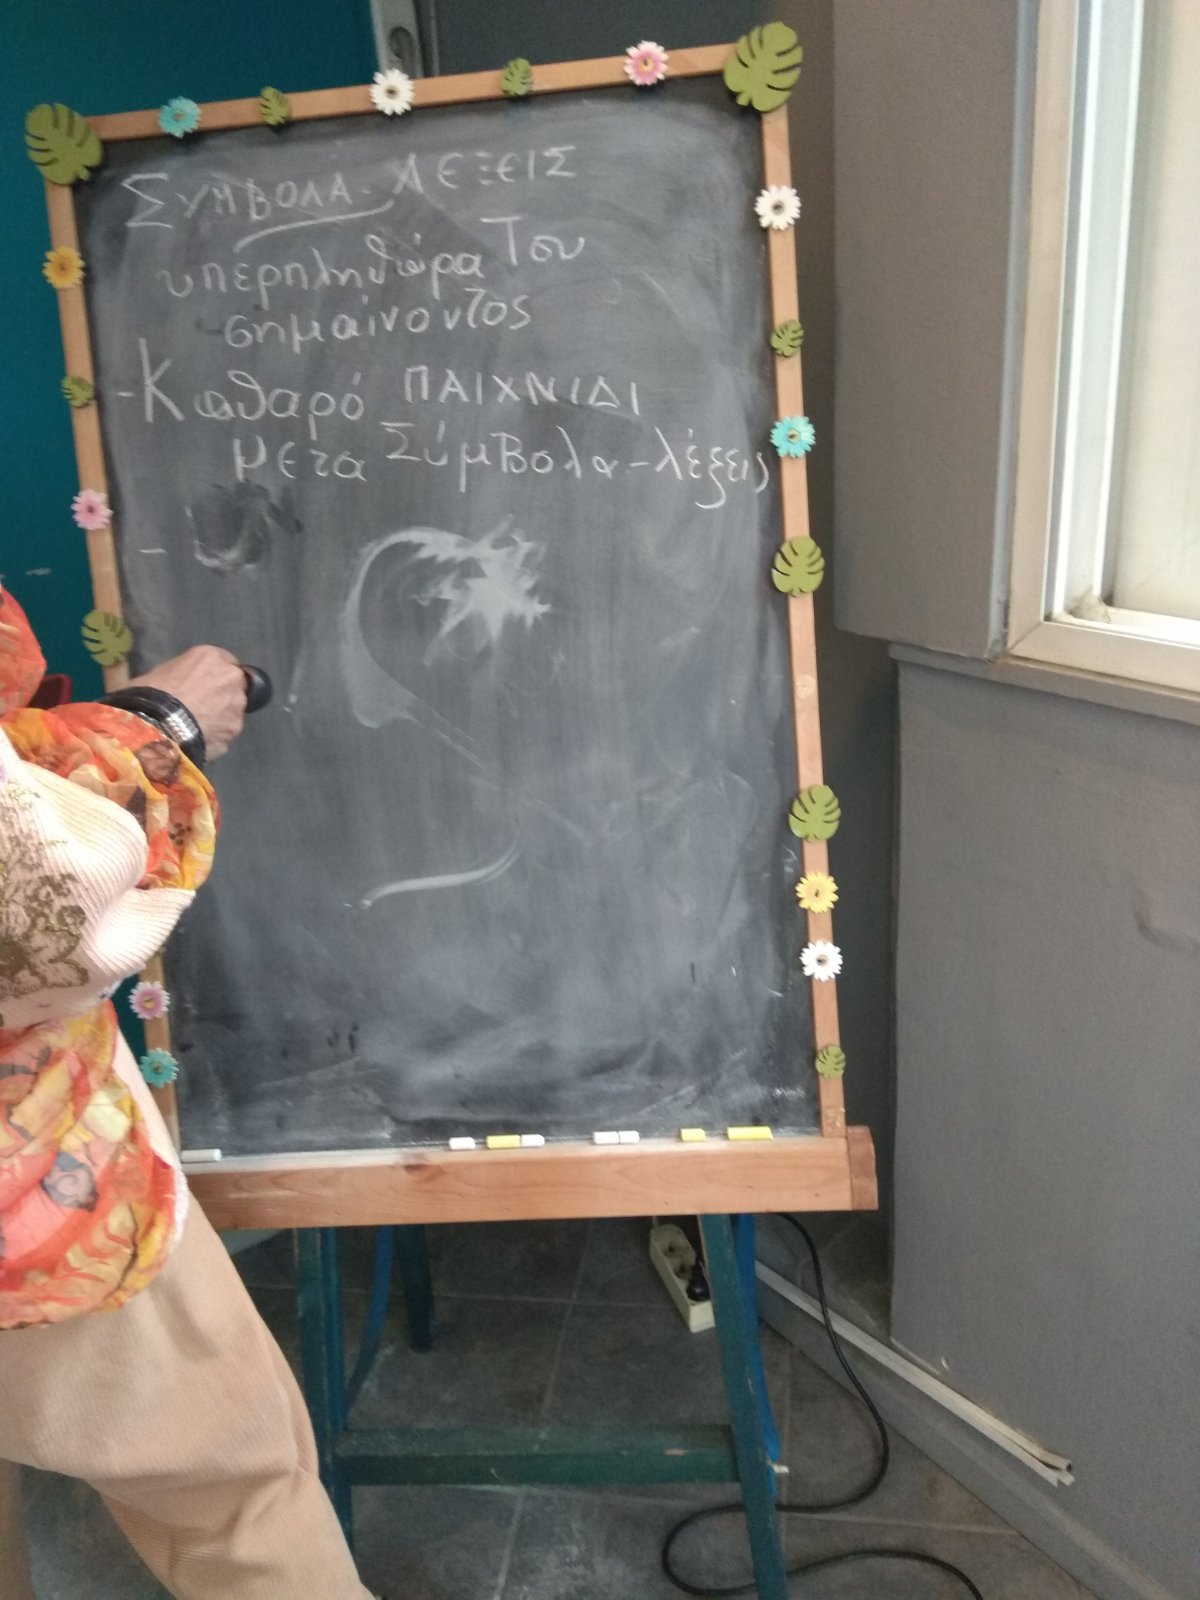 ΣΥΜΒΟΛΑ - ΛΕΞΕΙΣ
υπερπληθώρα Του
σημαίνοντος
- Καθαρό ΠΑΙΧΝΙΔΙ
μετα Σύμβολα - λέξεις
-